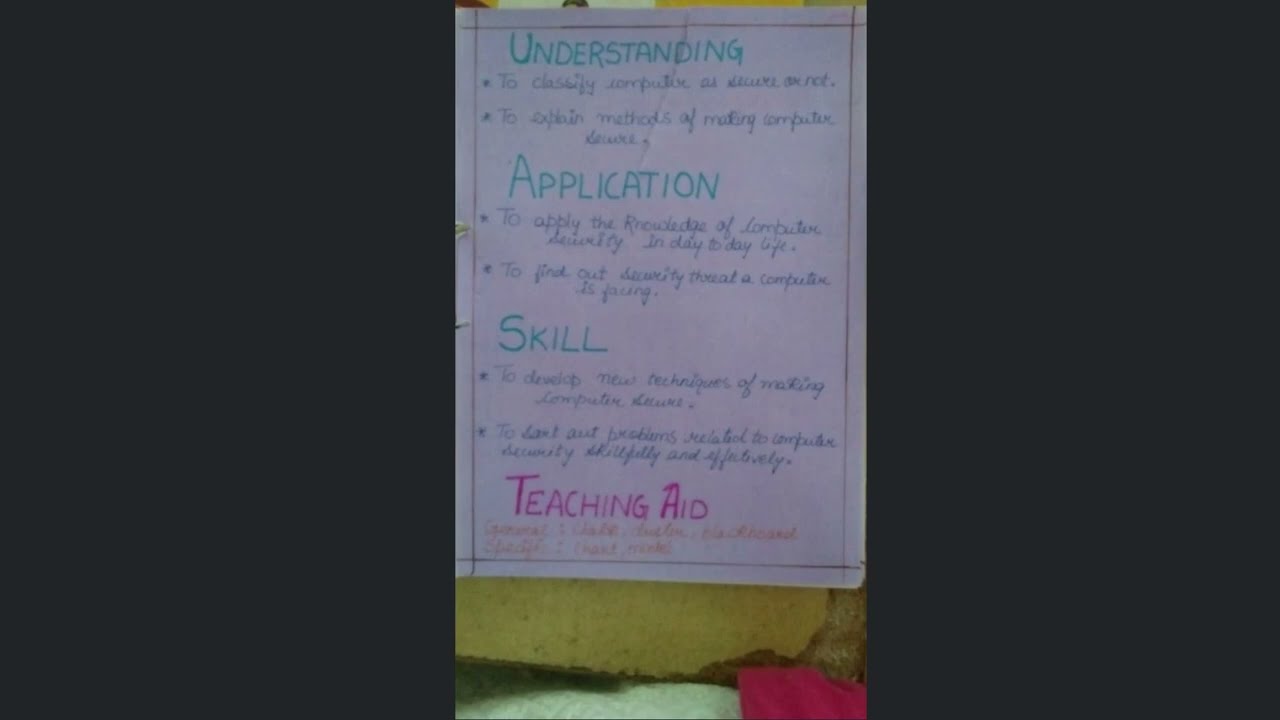 UNDERSTANDING
* To classify computer as secure or not.
* To explain methods of making computer
secure.
APPLICATION
* To apply the Knowledge of Computer
Security in day to day life.
* To find out security threat a computer
is facing.
SKILL
* To develop new techniques of making
Computer secure.
* To sort out problems related to computer
security skillfully and effectively.
TEACHING AID
General : Chalk, duster, blackboard
Specific : Chart, model